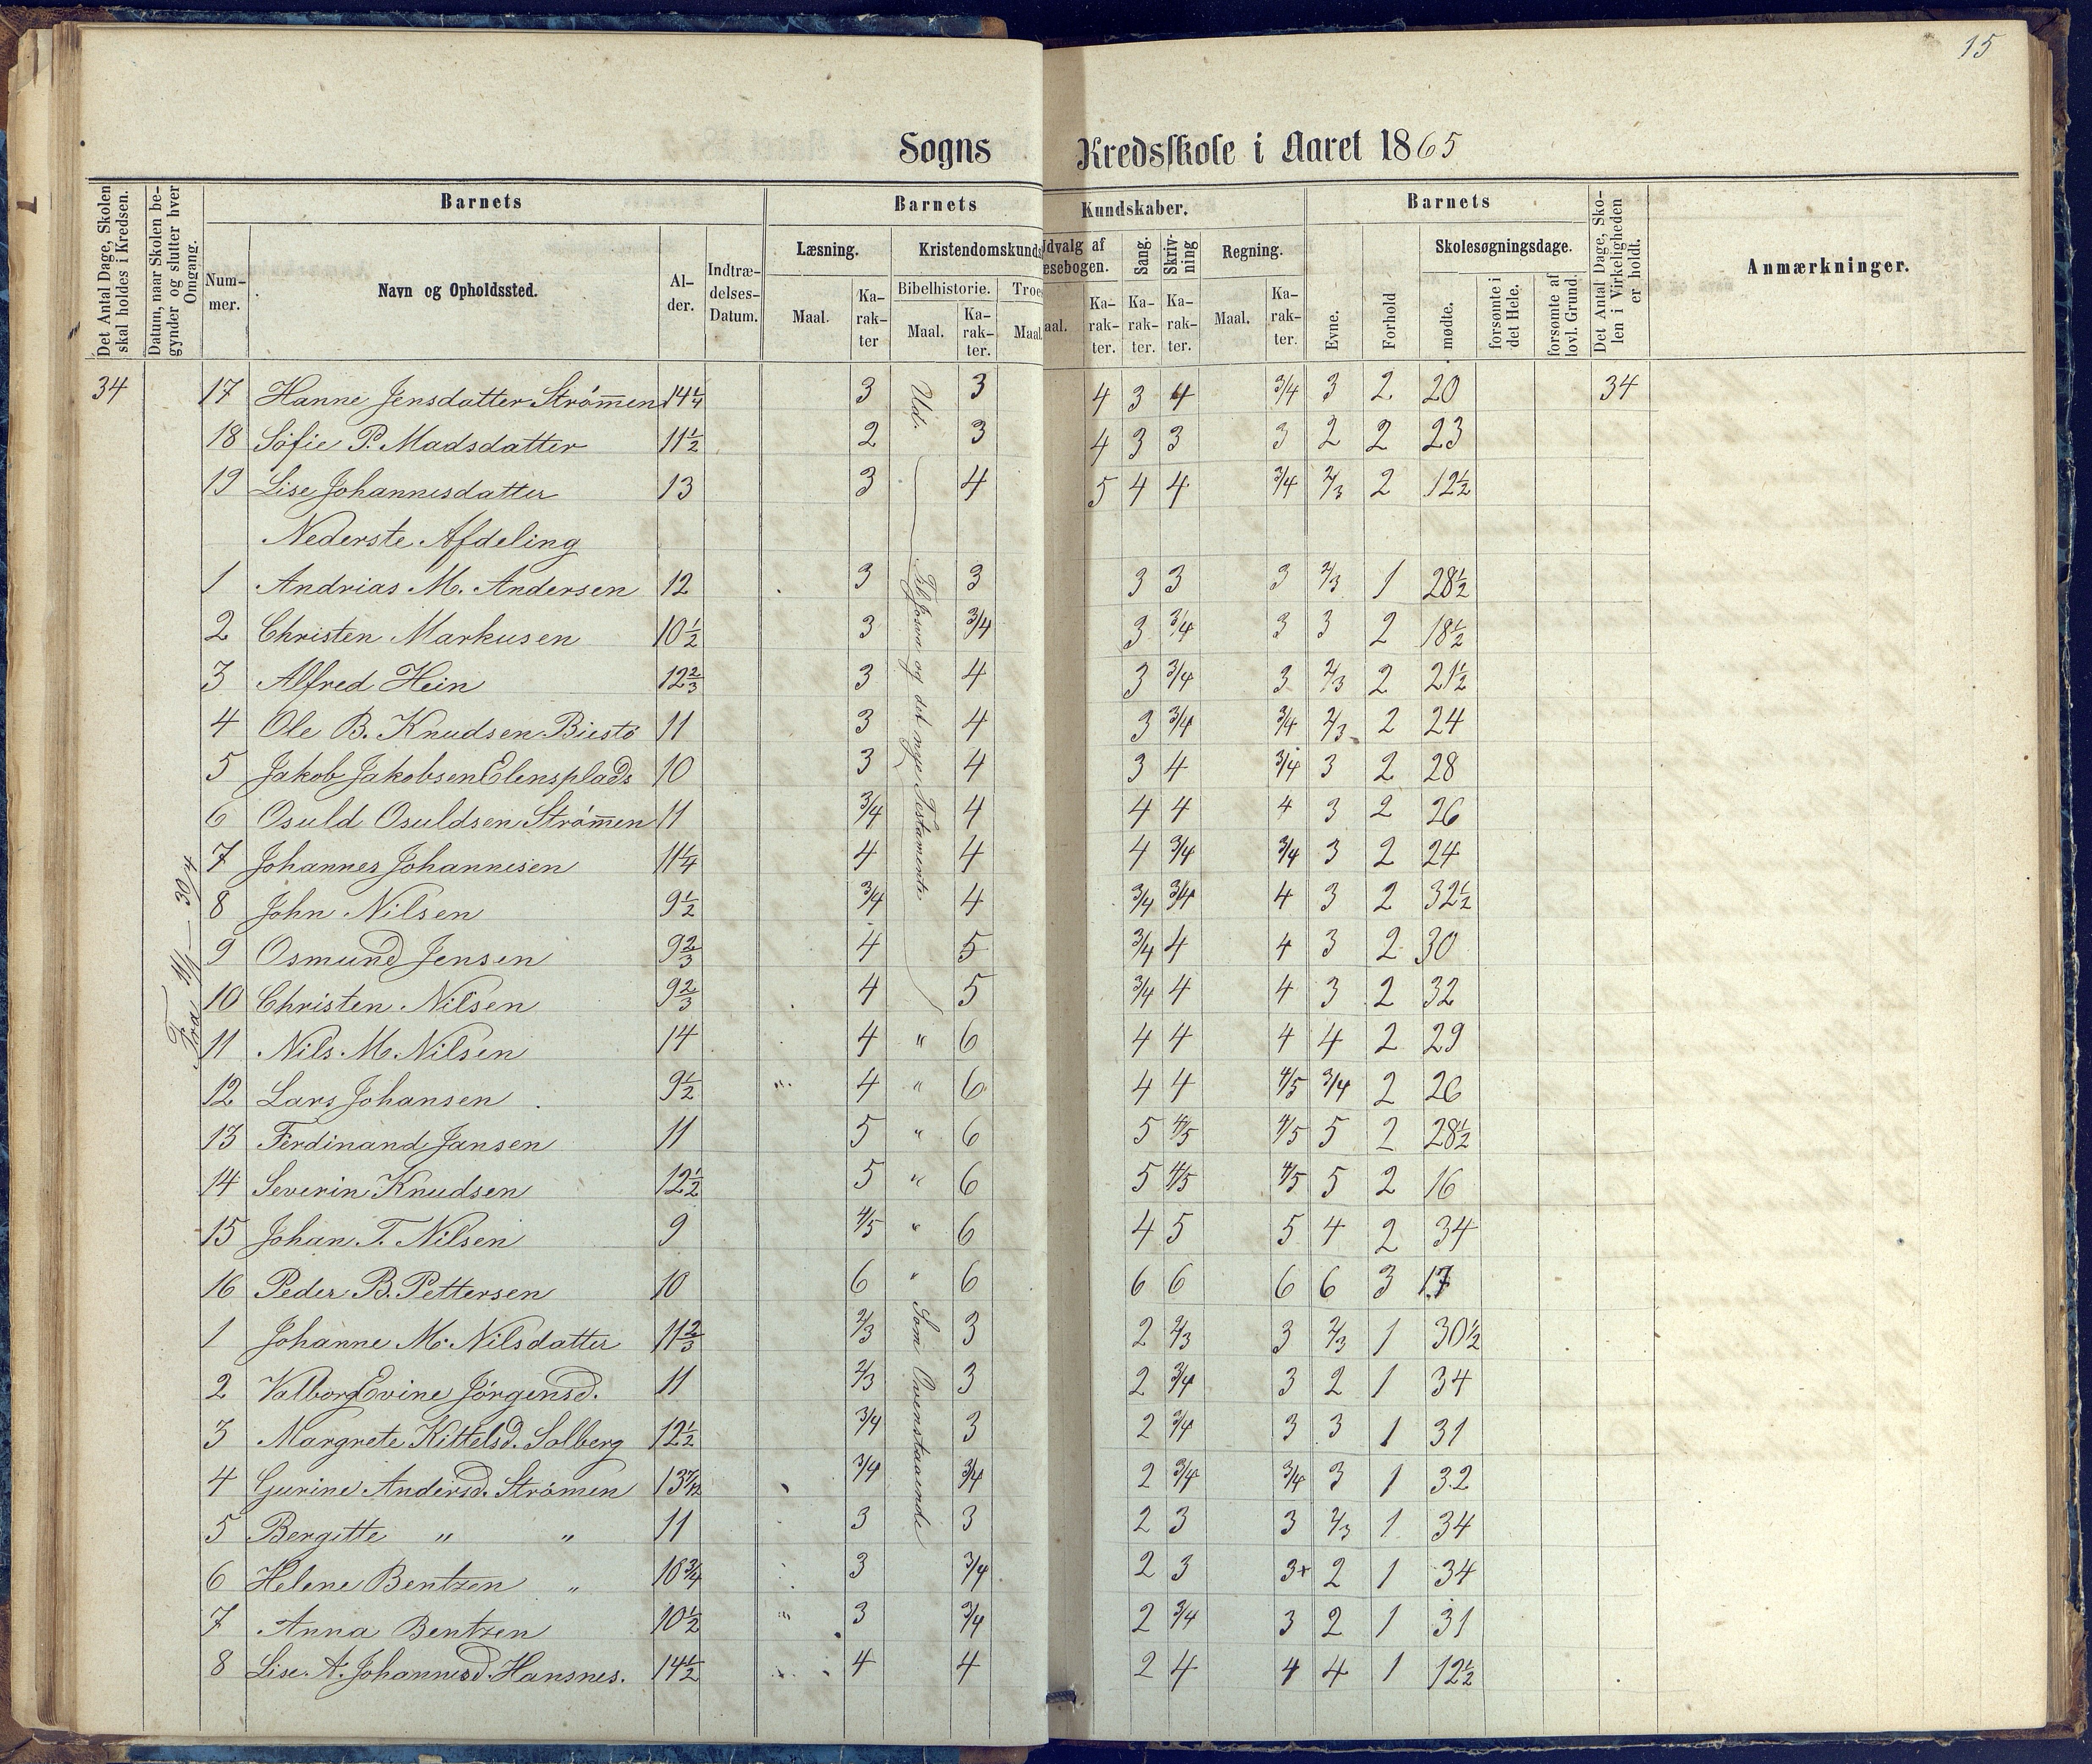 15
Sogns Kredsskole i Aaret 1865
Det Antal Dage, Skolen skal holdes i Kredsen.
Datum, naar Skolen begynder og slutter hver Omgang.
Barnets
Nummer.
Navn og Opholdssted.
Alder.
Indtrædelses-Datum.
Barnets Kundskaber.
Læsning.
Maal.
Karakter
Kristendomskunds
Bibelhistorie.
Maal.
Karakter.
Troes
Maal
Udvalg af
æsebogen.
aal.
Karakter.
Sang.
Karakter.
Skrivning
Karakter.
Regning.
Maal.
Karakter.
Barnets
Evne.
Forhold
Skolesøgningsdage.
mødte.
forsømte i det Hele.
forsømte af lovl. Grund.
Det Antal Dage, Skolen i Virkeligheden er holdt.
Anmærkninger.
34 17 Hanne Jensdatter Strømmen 14 1/4 3 Ud. 3 4 3 4 3/4 3 2 20 34
18 Sofie P. Madsdatter 11 1/2 2 3 4 3 3 3 2 2 23
19 Lise Johannesdatter 13 3 4 5 4 4 3/4 2/3 2 12 1/2
Nederste Afdeling
1 Andrias M. Andersen 12 3 3 3 3 3 2/3 1 28 1/2
2 Christen Markusen 10 1/2 3 3/4 3 3/4 3 3 2 18 1/2
3 Alfred Hein 12 2/3 3 4 3 3/4 3 2/3 2 21 1/2
4 Ole B. Knudsen Biestø 11 3 4 3 3/4 3/4 2/3 2 24
5 Jakob Jakobsen Elensplads 10 3 4 3 4 3/4 3 2 28
6 Osuld Osuldsen Strømmen 11 3/4 4 4 4 4 3 2 26
7 Johannes Johannesen 11 1/4 4 4 4 3/4 3/4 3 2 24
8 John Nilsen 9 1/2 3/4 4 3/4 3/4 4 3 2 32 1/2
9 Osmund Jensen 9 2/3 4 5 3/4 4 4 3 2 30
10 Christen Nilsen 9 2/3 4 5 3/4 4 4 3 2 32
11 Nils M. Nilsen 14 4 " 6 4 4 4 4 2 29
12 Lars Johansen 9 1/2 " 4 " 6 4 4 4/5 3/4 2 26
13 Ferdinand Jansen 11 5 " 6 5 4/5 4/5 5 2 28 1/2
14 Severin Knudsen 12 1/2 5 " 6 5 4/5 4/5 5 2 16
15 Johan T. Nilsen 9 4/5 " 6 4 5 5 4 2 34
16 Peder B. Pettersen 10 6 " 6 6 6 6 6 3 17
1 Johanne M. Nilsdatter 11 2/3 2/3 3 2 2/3 3 2/3 1 30 1/2
2 Valborg Evine Jörgensd. 11 2/3 3 2 3/4 3 2 1 34
3 Margrete Kittelsd. Solberg 12 1/2 3/4 3 2 3/4 3 3 1 31
4 Gurine Andersd. Strømen 13 7/12 3/4 3/4 2 3/4 3/4 3 1 32
5 Bergitte " " 11 3 3 2 3 3 2/3 1 34
6 Helene Bentzen " 10 3/4 3 3/4 2 3 3+ 2 1 34
7 Anna Bentzen 10 1/2 " 3 3/4 2 3/4 3 2 1 31
8 Lise A. Johannesd. Hansnes. 14 1/2 4 4 2 4 4 4 1 12 1/2
Til Josva og det nye Testamente
Som Ovenstaaende
Fra 11/1 — 30/4